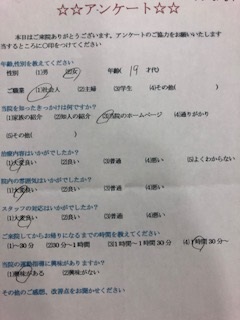 ☆☆アンケート☆☆
本日はご来院ありがとうございます。アンケートのご協力をお願いいたします
当するところに〇印をつけてください
年齢,性別を教えてください
性別 (1)男 (2)女 年齢( 19 才代)
ご職業 (1)社会人 (2)主婦 (3)学生 (4)その他( )
当院を知ったきっかけは何ですか?
(1)家族の紹介 (2)知人の紹介 (3)当院のホームページ (4)通りがかり
(5)その他( )
治療内容はいかがでしたか?
(1)大変良い (2)良い (3)普通 (4)悪い (5)よくわからない
院内の雰囲気はいかがでしたか?
(1)大変良い (2)良い (3)普通 (4)悪い
スタッフの対応はいかがでしたか?
(1)大変良い (2)良い (3)普通 (4)悪い
ご来院してからお帰りになるまでの時間を教えてください
(1)~30分 (2)30分~1時間 (3)1時間~1時間30分 (4)1時間30分~
当院の運動指導に興味がありますか?
(1)興味がある (2)興味がない
その他のご感想、改善点をお聞かせください